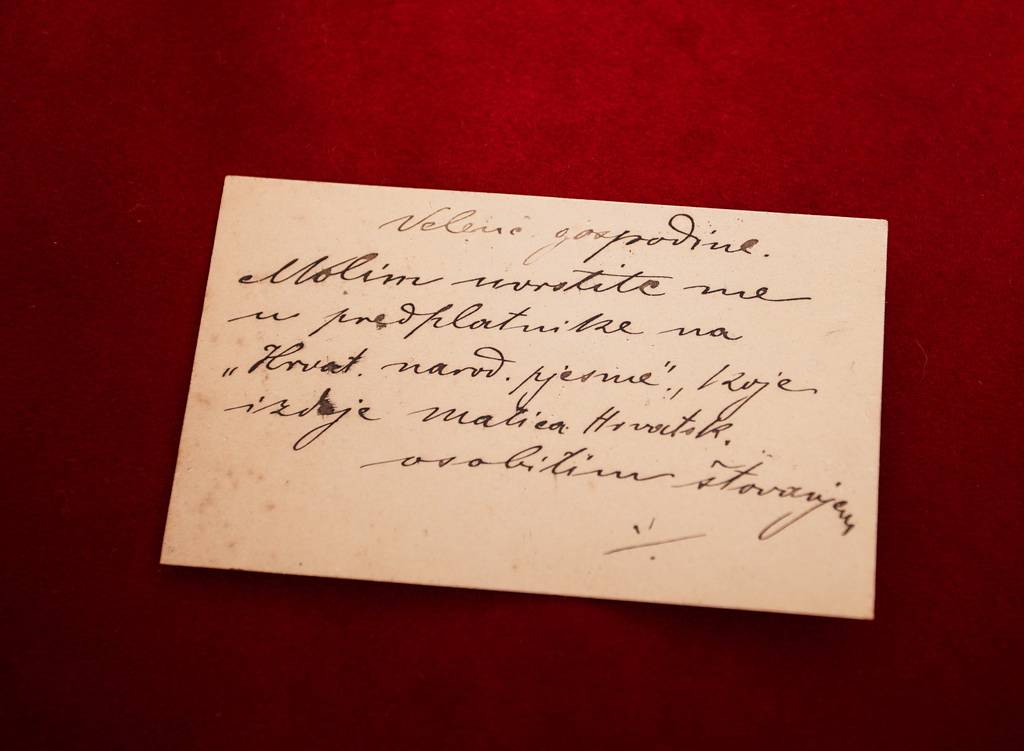 Velenc gospodine.
Molim uvrstite me
u predplatnike na
„Hrvat. narod. pjesme", koje
izdaje matica Hrvatsk.
osobitim štovanjem